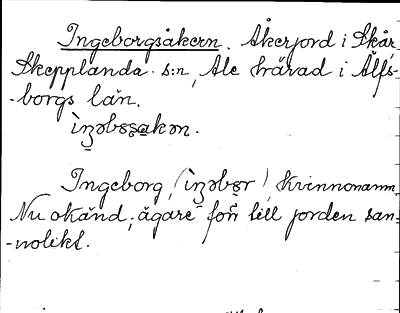 Ingeborgsåkern. Åkerjord i Skår,
Skepplanda s:n, Ale härad i Älfs-
-borgs län.
ìŋəbɛʂakən.
Ingeborg, (ìŋəbʂr), kvinnonamn.
Nu okänd, ägare förr till jorden san-
-nolikt.